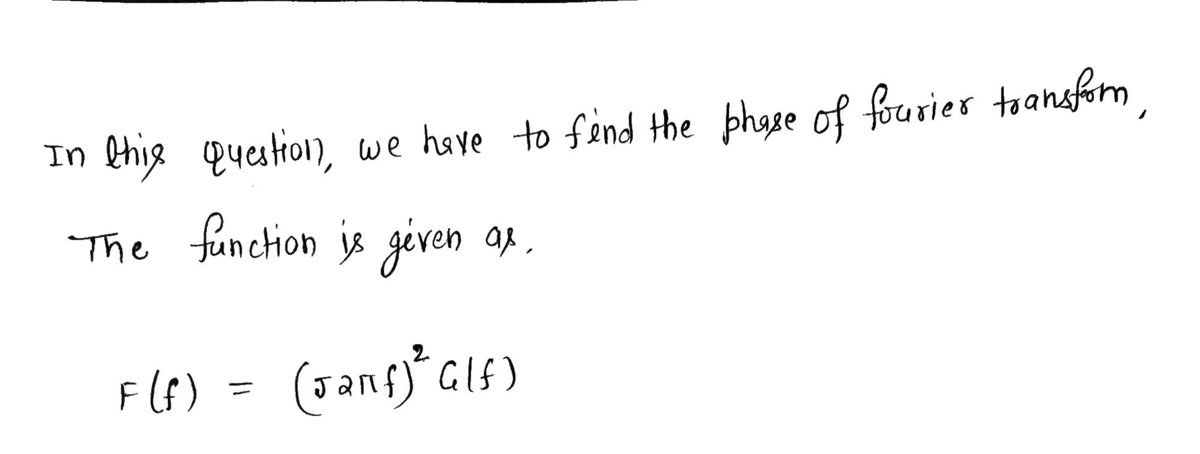 In this question, we have to find the phase of fourier transform,
The function is given as.
F(f) = (J2πf)² G(f)